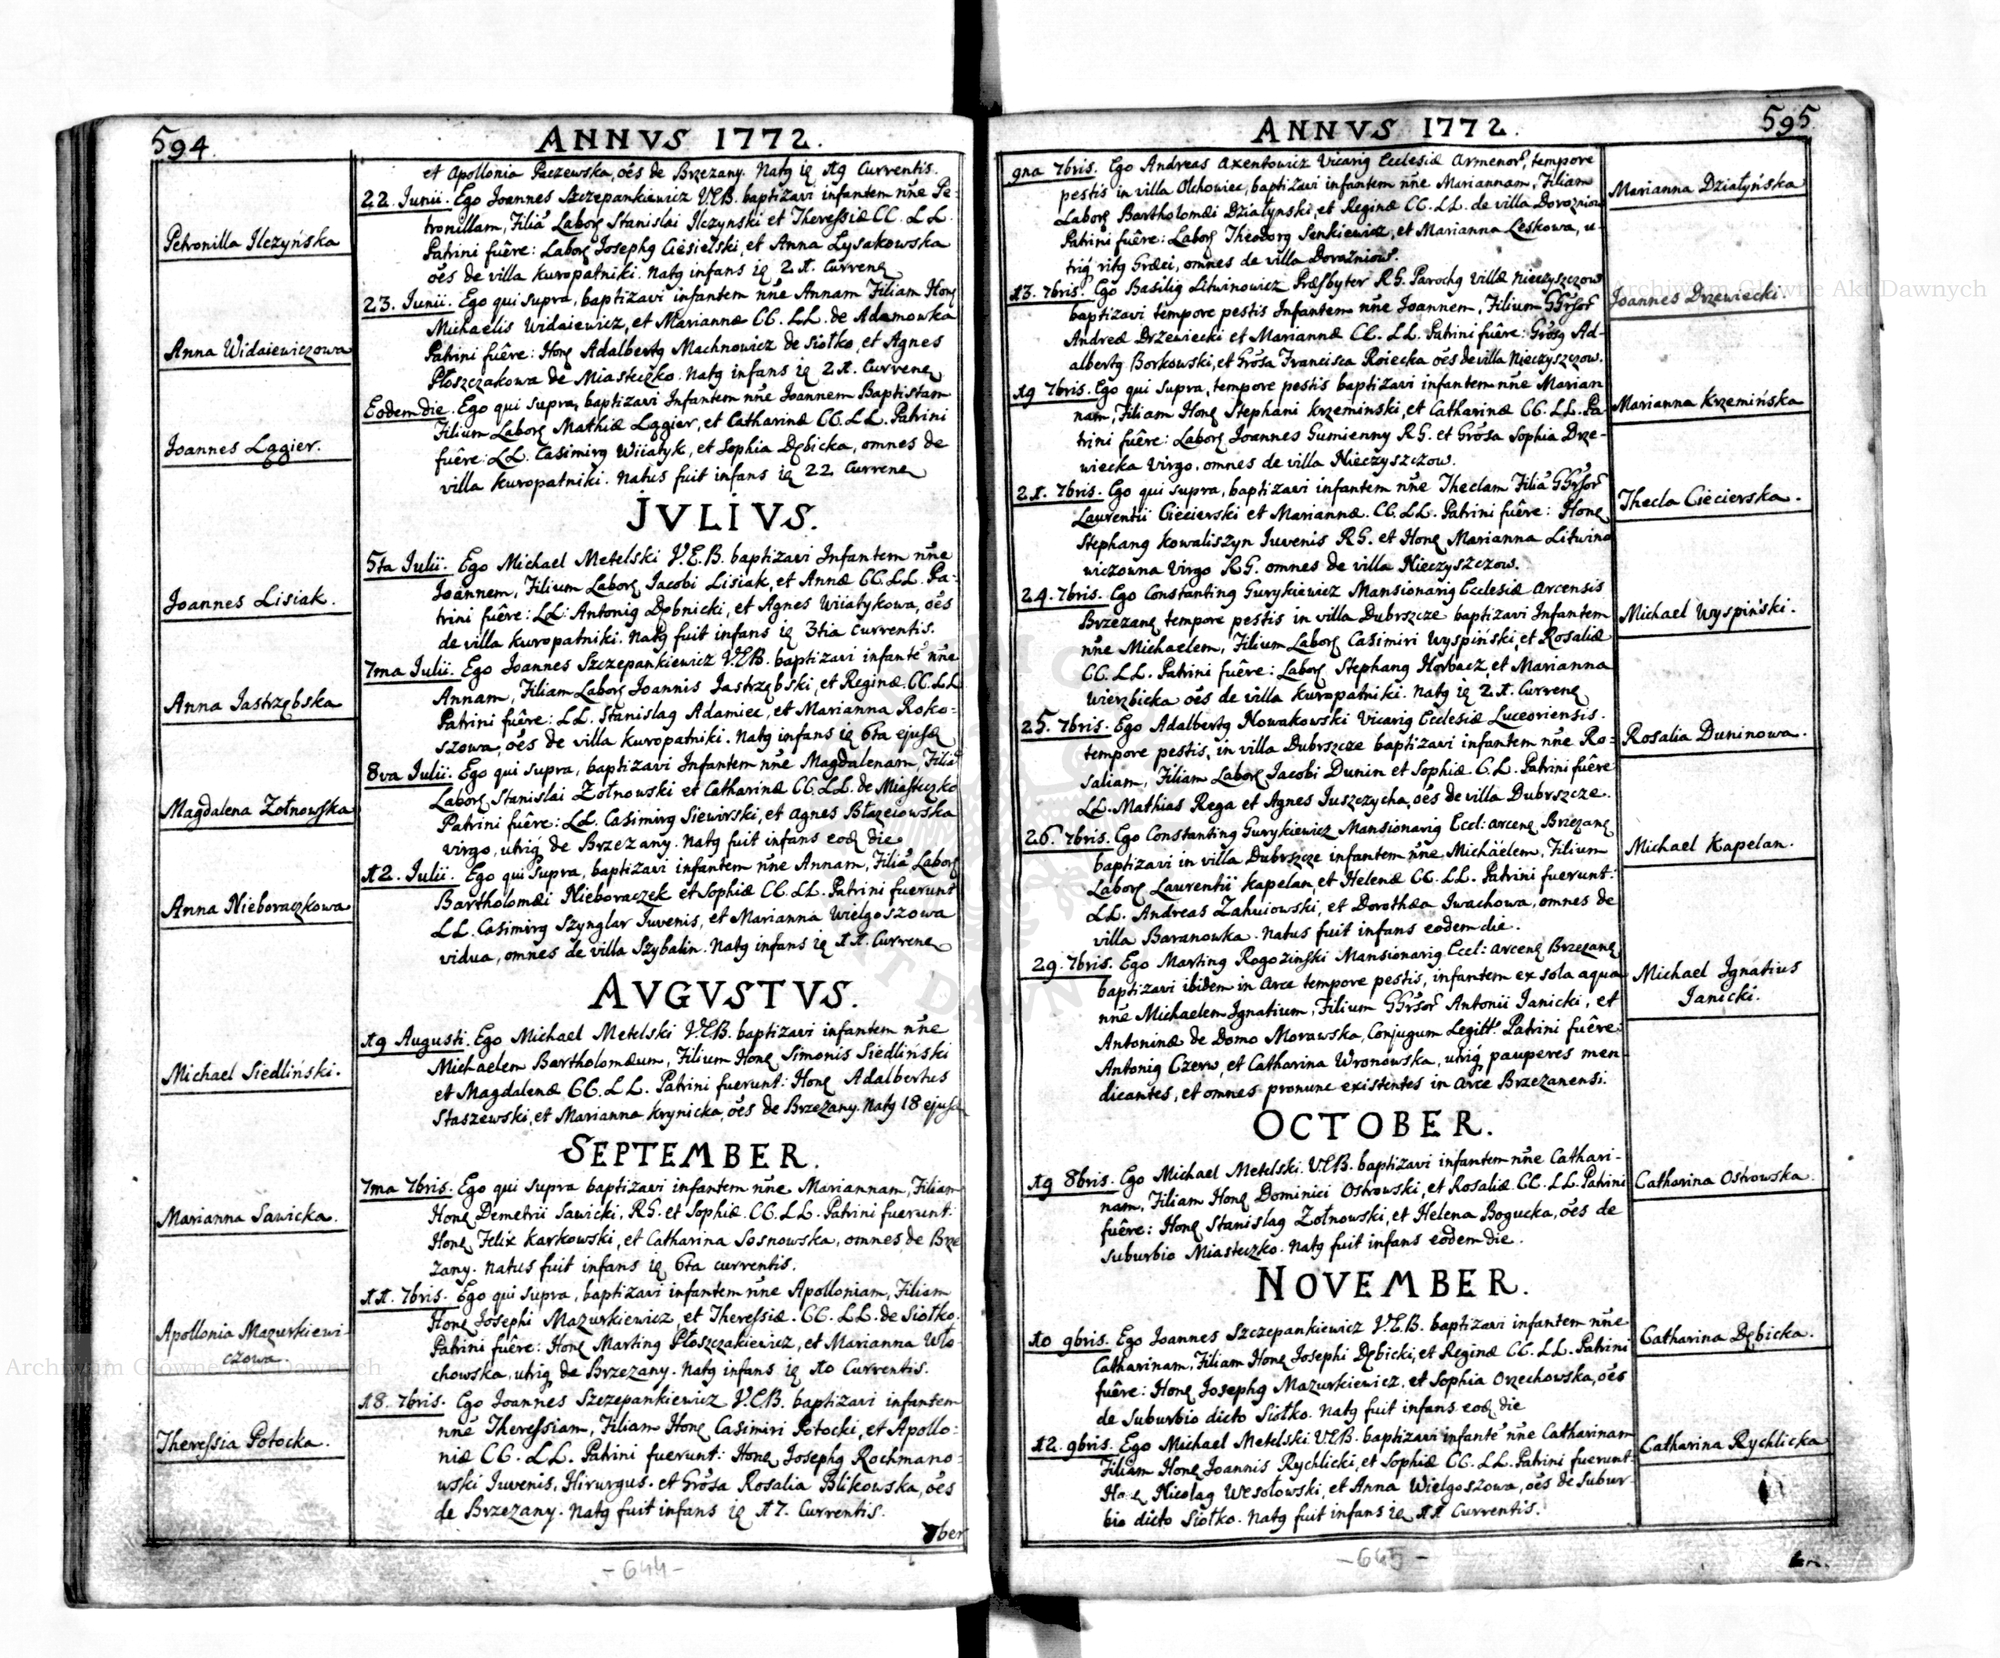 594.
ANNVS 1772.
et Apollonia Paczewska, oēs de Brzezany. Natg ię 19 Currentis.
22. Junii. Ego Joannes Szczepankiewicz V.E.B. baptizavi infantem nn̄e Pe-
Petronilla Ilczyńska
tronillam, Filiā Laborę Stanislai Ilczynski et Theressiæ CC. LL.
Patrini fuêre: Laborę Josephg Ciesielski, et Anna Lysakowska
oēs de villa Kuropatniki. Natg infans ię 21. Currenę
23. Junii. Ego qui supra, baptizavi infantem nn̄e Annam Filiam Honę
Anna Widaiewiczowa
Michaelis Widaiewicz, et Mariannæ CC. LL. de Adamowka
Patrini fuêre: Honę Adalbertg Machnowicz de Siołko, et Agnes
Płoszczakowa de Miasteczko. Natg infans ię 21. Currenę
Eodem die. Ego qui supra, baptizavi Infantem nn̄e Joannem Baptistam
Joannes Lęgier.
Filium Laborę Mathiæ Lęgier, et Catharinæ CC. LL. Patrini
fuêre: LL. Casimirg Wiiatyk, et Sophia Dębicka, omnes de
villa Kuropatniki. Natus fuit infans ię 22 Currenę
JVLIVS.
5ta Julii. Ego Michael Metelski V.E.B. baptizavi Infantem nn̄e
Joannes Lisiak.
Joannem, Filium Laborę Jacobi Lisiak, et Annæ CC. LL. Pa-
trini fuêre: LL: Antonig Dębnicki, et Agnes Wiiatykowa, oēs
de villa Kuropatniki. Natg fuit infans ię 3tia Currentis.
7ma Julii. Ego Joannes Szczepankiewicz V.E.B. baptizavi infantē nn̄e
Anna Jastrzębska
Annam, Filiam Laborę Joannis Jastrzębski, et Reginæ. CC. LL
Patrini fuêre: LL. Stanislag Adamiec, et Marianna Roko-
szowa, oēs de villa Kuropatniki. Natg infans ię 6ta ejusę
8va Julii. Ego qui supra, baptizavi Infantem nn̄e Magdalenam, Filiā
Magdalena Zołnowska
Laborę Stanislai Zołnowski et Catharinæ CC. LL. de Miasteczko
Patrini fuêre: LL. Casimirg Siewirski, et Agnes Błazeiowska
virgo, utrig de Brzezany. Natg fuit infans eoę die
12. Julii. Ego qui supra, baptizavi infantem nn̄e Annam, Filiā Laborę
Anna Nieboraczkowa
Bartholomæi Nieboraczek et Sophiæ CC. LL. Patrini fuerunt
LL. Casimirg Szynglar Juvenis, et Marianna Wielgoszowa
vidua, omnes de villa Szybalin. Natg infans ię 11. Currenę
AVGVSTVS.
19 Augusti. Ego Michael Metelski V.E.B. baptizavi infantem nn̄e
Michael Siedliński.
Michaelem Bartholomæum, Filium Honę Simonis Siedliński
et Magdalenæ CC. LL. Patrini fuerunt: Honę Adalbertus
Staszewski, et Marianna Krynicka, oēs de Brzezany. Natg 18 ejusę
SEPTEMBER.
7ma 7bris. Ego qui supra baptizavi infantem nn̄e Mariannam, Filiam
Marianna Sawicka.
Honę Demetrii Sawicki, RG. et Sophiæ. CC. LL. Patrini fuerunt:
Honę Felix Karkowski, et Catharina Sosnowska, omnes de Brze
zany. Natus fuit infans ię 6ta currentis.
11. 7bris. Ego qui supra, baptizavi infantem nn̄e Apolloniam, Filiam
Apollonia Mazurkiewi-
czowa.
Honę Josephi Mazurkiewicz, et Theressiæ. CC. LL. de Siołko.
Patrini fuêre: Honę Marting Płoszczakiewicz, et Marianna Wło-
chowska, utrig de Brzezany. Natg infans ię 10 Currentis.
18. 7bris. Ego Joannes Szczepankiewicz V.E.B. baptizavi infantem
Theressia Potocka.
nn̄e Theressiam, Filiam Honę Casimiri Potocki, et Apollo-
niæ CC. LL. Patrini fuerunt: Honę Josephg Rochmano-
wski Juvenis, Hirurgus. et Grōsa Rosalia Blikowska, oēs
de Brzezany. Natg fuit infans ię 17. Currentis.
7ber
-644-
ANNVS 1772.
595
9na 7bris. Ego Andreas Axentowicz Vicarig Ecclesiæ Armenor̄, tempore
Marianna Działyńska
pestis in villa Olchowiec, baptizavi infantem nn̄e Mariannam, Filiam
Laborę Bartholomæi Działynski, et Reginæ CC. LL. de villa Doroznior
Patrini fuêre: Laborę Theodorg Senkiewicz, et Marianna Leskowa, u-
trig ritg Græci, omnes de villa Dorażniow.
13. 7bris. Ego Basilig Litwinowicz Præsbyter RG. Parochg villæ Nieczyszczow
Joannes Drzewiecki.
baptizavi tempore pestis Infantem nn̄e Joannem, Filium GGrsor̄
Andreæ Drzewiecki et Mariannæ CC. LL. Patrini fuêre: Grōsg Ad-
albertg Borkowski, et Grōsa Francisca Roiecka oēs de villa Nieczyszczow.
19 7bris. Ego qui supra, tempore pestis baptizavi infantem nn̄e Marian
Marianna Krzemińska
nam, Filiam Honę Stephani Krzeminski, et Catharinæ CC. LL. Pa
trini fuêre: Laborę Joannes Gumienny RG. et Grōsa Sophia Drze-
wiecka Virgo, omnes de villa Nieczyszczow.
21. 7bris. Ego qui supra, baptizavi infantem nn̄e Theclam Filiā GGrsor̄
Thecla Ciecierska.
Laurentii Ciecierski et Mariannæ. CC. LL. Patrini fuêre: Honę
Stephang Kowaliszyn Juvenis RG. et Honę Marianna Litwino
wiczowna Virgo RG. omnes de villa Nieczyszczow.
24. 7bris. Ego Constanting Gurykiewicz Mansionarig Ecclesiæ Arcensis
Michael Wyspiński.
Brzezanę tempore pestis in villa Dubrszcze baptizavi Infantem
nn̄e Michaelem, Filium Laborę Casimiri Wyspiński, et Rosaliæ
CC. LL. Patrini fuêre: Laborę Stephang Horbacz, et Marianna
Wierzbicka oēs de villa Kuropatniki. Natg ię 21. Currenę
25. 7bris. Ego Adalbertg Nowakowski Vicarig Ecclesiæ Luceoriensis.
Rosalia Duninowa.
tempore pestis, in villa Dubrszcze baptizavi infantem nn̄e Ro-
saliam, Filiam Laborę Jacobi Dunin et Sophiæ. C. L. Patrini fuêre
LL. Mathias Rega et Agnes Juszczycha, oēs de villa Dubrszcze.
26. 7bris. Ego Constanting Gurykiewicz Mansionarig Eccl: arcenę Brzezanę
Michael Kapelan.
baptizavi in villa Dubrszcze infantem nn̄e Michäelem, Filium
Laborę Laurentii Kapelan, et Helenæ CC. LL. Patrini fuerunt:
LL. Andreas Zahuiowski, et Dorothæa Iwachowa, omnes de
villa Baranowka. Natus fuit infans eodem die.
29. 7bris. Ego Marting Rogoziński Mansionarig Eccl: arcenę Brzezanę
Michael Ignatius
Janicki.
baptizavi ibidem in Arce tempore pestis, infantem ex sola aqua
nn̄e Michaelem Ignatium, Filium GGrsor̄ Antonii Janicki, et
Antoninæ de Domo Morawska, Conjugum Legitt: Patrini fuêre
Antonig Czerw, et Catharina Wronowska, utrig pauperes men-
dicantes, et omnes pronunc existentes in Arce Brzezanensi.
OCTOBER.
19 8bris. Ego Michael Metelski. V.E.B. baptizavi infantem nn̄e Cathari-
Catharina Ostrowska.
nam, Filiam Honę Dominici Ostrowski, et Rosaliæ. CC. LL. Patrini
fuêre: Honę Stanislag Zołnowski, et Helena Bogucka, oēs de
Suburbio Miasteczko. Natg fuit infans eodem die.
NOVEMBER.
10 9bris. Ego Joannes Szczepankiewicz V.E.B. baptizavi infantem nn̄e
Catharina Dębicka.
Catharinam, Filiam Honę Josephi Dębicki, et Reginæ CC. LL. Patrini
fuêre: Honę Josephg Mazurkiewicz, et Sophia Orzechowska, oēs
de Suburbio dicto Siołko. Natg fuit infans eoę die
12. 9bris. Ego Michael Metelski. V.E.B. baptizavi infantē nn̄e Catharinam
Catharina Rychlicka
Filiam Honę Joannis Rychlicki, et Sophiæ CC. LL. Patrini fuerunt
Honę Nicolag Wesołowski, et Anna Wielgoszowa, oēs de Subur
bio dicto Siołko. Natg fuit infans ię 11 Currentis.
-645-
Archiwum Główne Akt Dawnych
Archiwum Główne Akt Dawnych